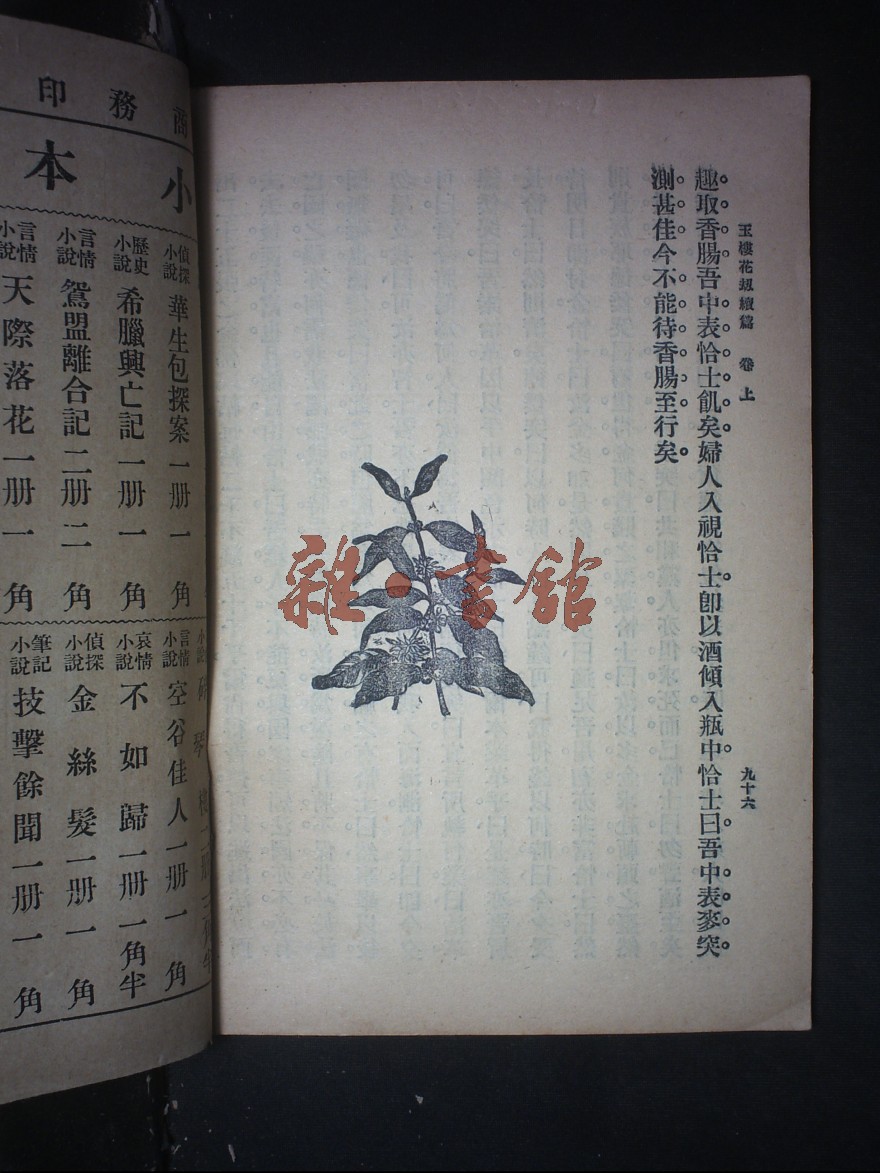 玉樓花刼續篇 卷上
九十六
趣取香腸吾中表恰士飢矣婦人入視恰士卽以酒傾入瓶中恰士曰吾中表麥突
測甚佳今不能待香腸至行矣
雜·書館
商務印
小本
偵探小說 華生包探案 一册 一角
歷史小說 希臘興亡記 一册 一角
言情小說 鴛盟離合記 二册 二角
言情小說 天際落花 一册 一角
言情小說 空谷佳人 一册 一角
哀情小說 不如歸 一册 一角半
偵探小說 金絲髮 一册 一角
筆記小說 技擊餘聞 一册 一角